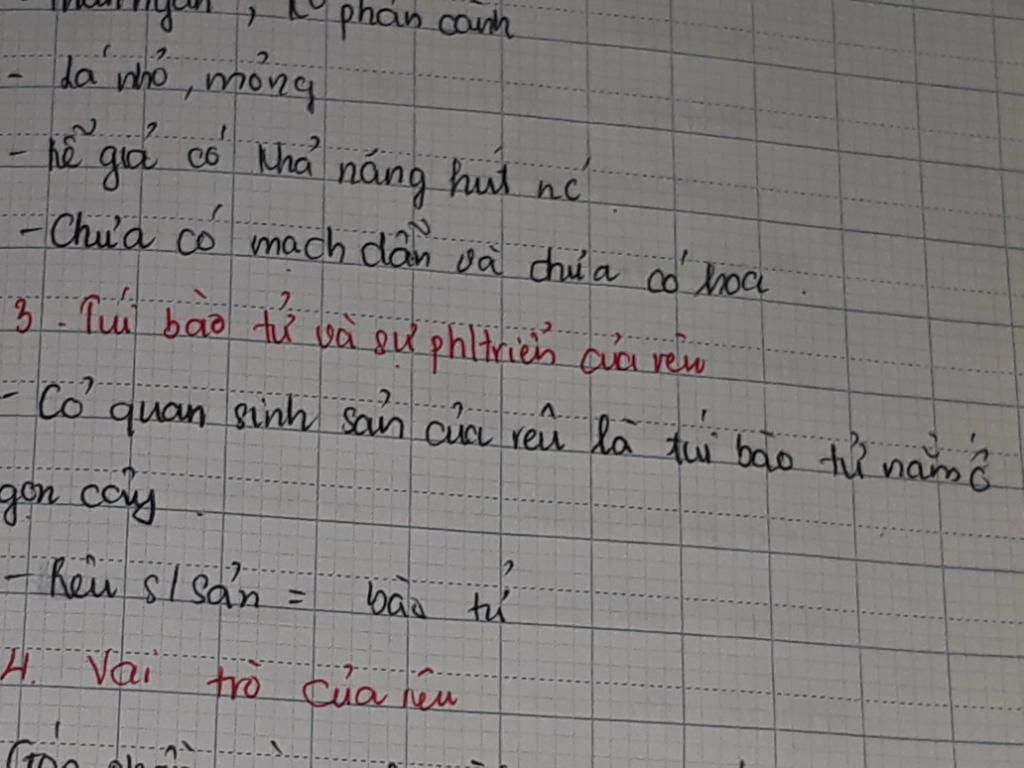 thân ngắn, ko phân cành
- lá nhỏ, mỏng
- Rễ giả có khả năng hút nc
- Chưa có mạch dẫn và chưa có hoa.
3. Túi bào tử và sự ph/triển của rêu
- Cơ quan sinh sản của rêu là túi bào tử nằm ở
gọn cây.
- Rêu s/sản = bào tử
4. Vai trò của rêu